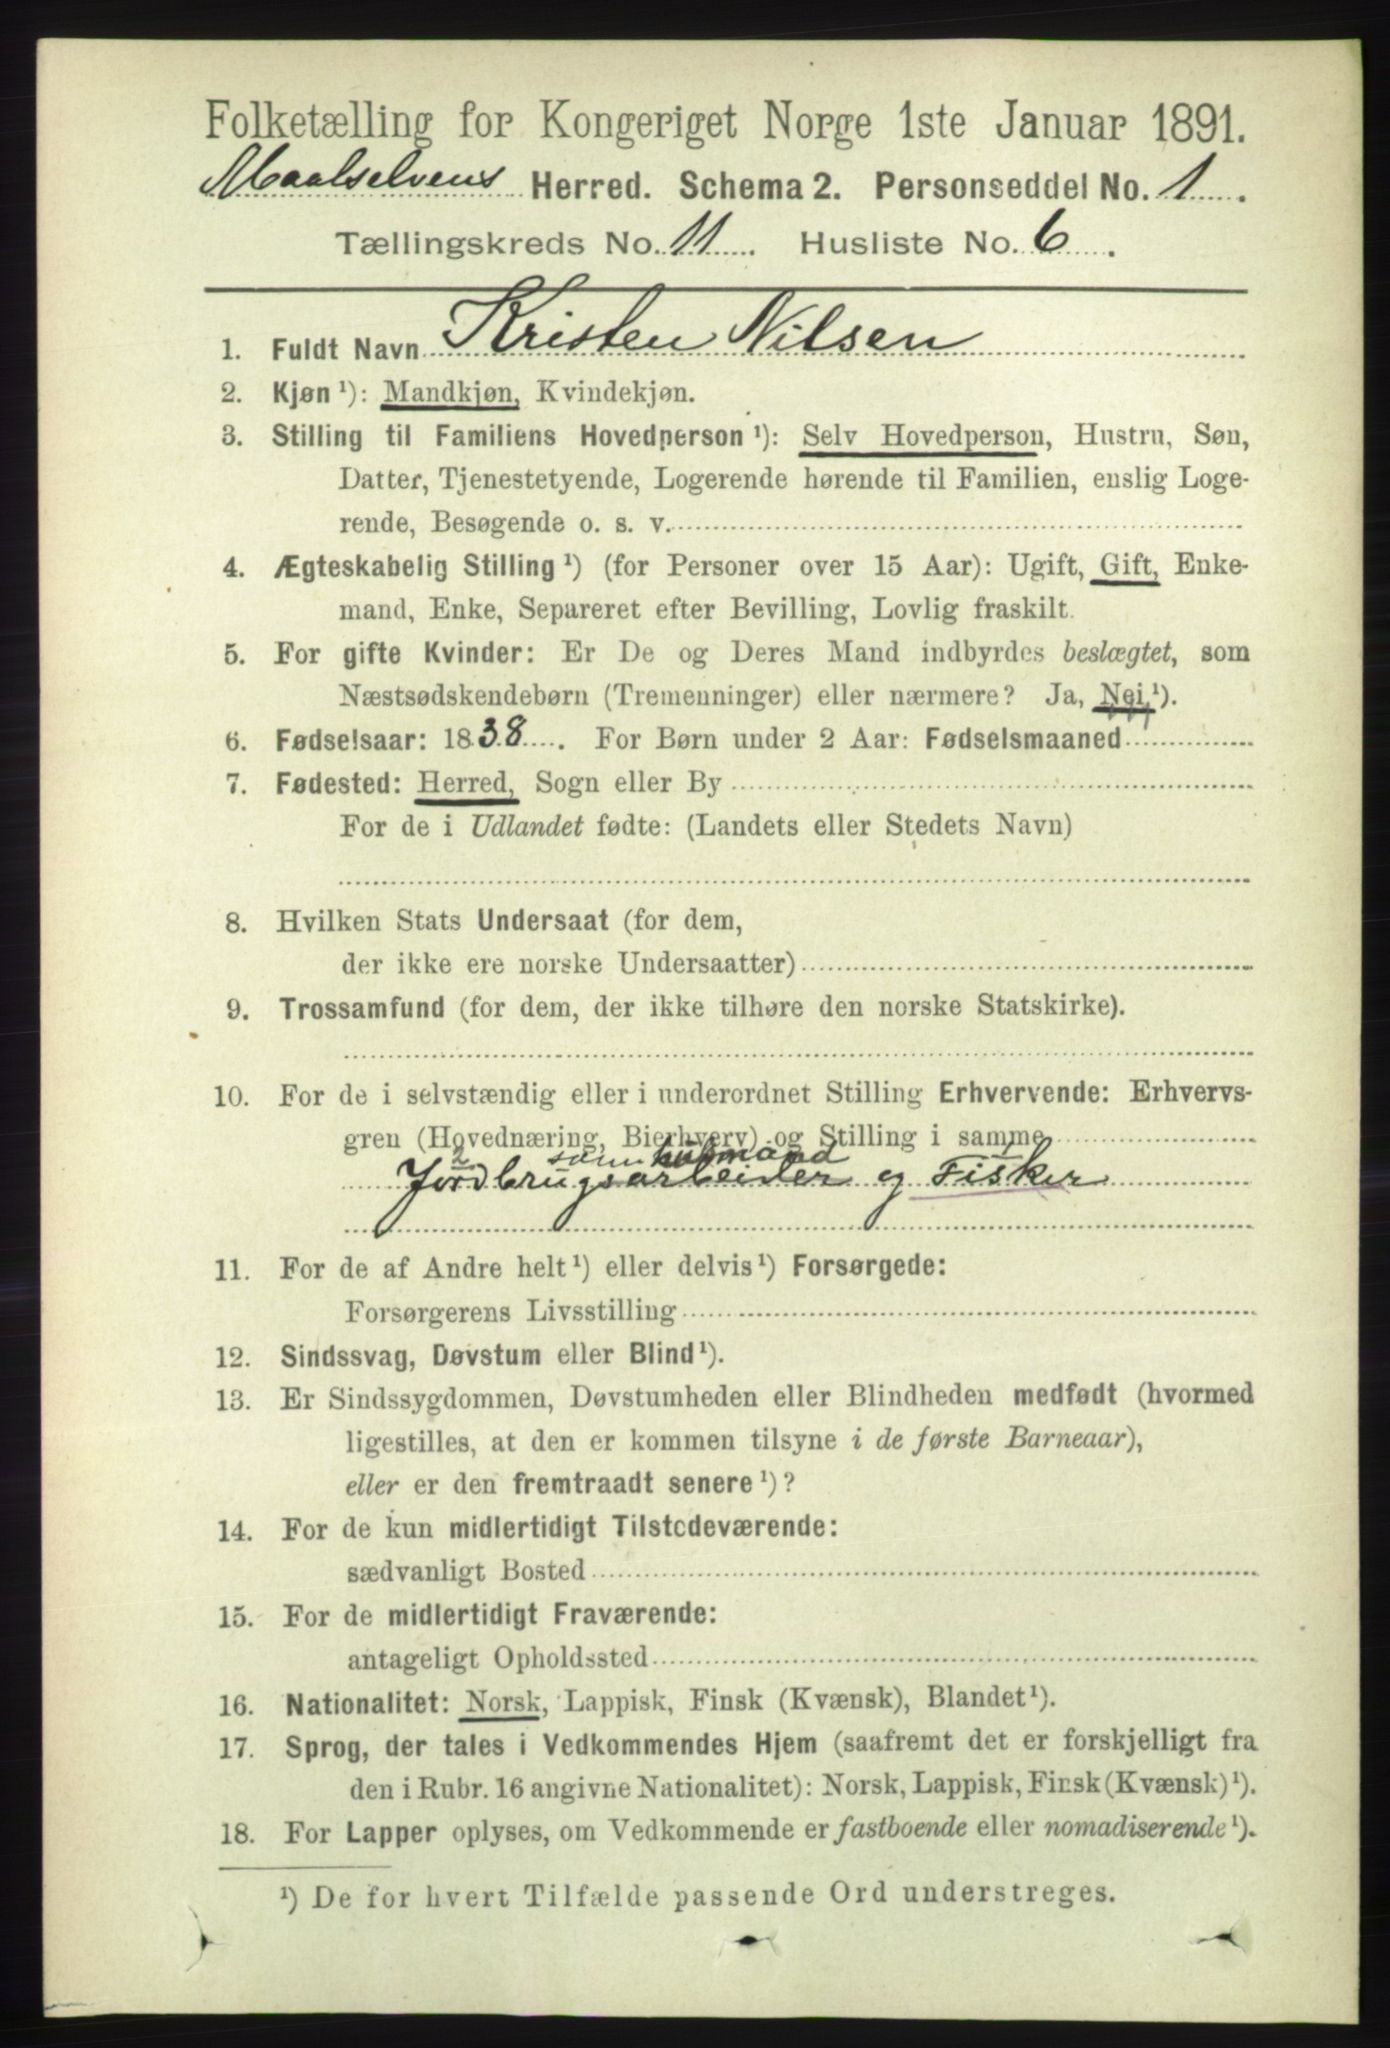 Folketælling for Kongeriget Norge 1ste Januar 1891.
Maalselvens Herred. Schema 2. Personseddel No. 1.
Tællingskreds No. 11. Husliste No. 6.
1. Fuldt Navn Kristen Nilsen
2. Kjøn ¹): Mandkjøn, Kvindekjøn.
3. Stilling til Familiens Hovedperson ¹): Selv Hovedperson, Hustru, Søn,
Datter, Tjenestetyende, Logerende hørende til Familien, enslig Loge-
rende, Besøgende o. s. v.
4. Ægteskabelig Stilling ¹) (for Personer over 15 Aar): Ugift, Gift, Enke-
mand, Enke, Separeret efter Bevilling, Lovlig fraskilt.
5. For gifte Kvinder: Er De og Deres Mand indbyrdes beslægtet, som
Næstsødskendebørn (Tremenninger) eller nærmere? Ja, Nei ¹).
6. Fødselsaar: 1838. For Børn under 2 Aar: Fødselsmaaned
7. Fødested: Herred, Sogn eller By
For de i Udlandet fødte: (Landets eller Stedets Navn)
8. Hvilken Stats Undersaat (for dem,
der ikke ere norske Undersaatter)
9. Trossamfund (for dem, der ikke tilhøre den norske Statskirke).
10. For de i selvstændig eller i underordnet Stilling Erhvervende: Erhvervs-
gren (Hovednæring, Bierhverv) og Stilling i samme
2 som husmand 1
Jordbrugsarbeider og Fisker
11. For de af Andre helt ¹) eller delvis ¹) Forsørgede:
Forsørgerens Livsstilling
12. Sindssvag, Døvstum eller Blind ¹).
13. Er Sindssygdommen, Døvstumheden eller Blindheden medfødt (hvormed
ligestilles, at den er kommen tilsyne i de første Barneaar),
eller er den fremtraadt senere ¹)?
14. For de kun midlertidigt Tilstedeværende:
sædvanligt Bosted
15. For de midlertidigt Fraværende:
antageligt Opholdssted
16. Nationalitet: Norsk, Lappisk, Finsk (Kvænsk), Blandet ¹).
17. Sprog, der tales i Vedkommendes Hjem (saafremt det er forskjelligt fra
den i Rubr. 16 angivne Nationalitet): Norsk, Lappisk, Finsk (Kvænsk) ¹).
18. For Lapper oplyses, om Vedkommende er fastboende eller nomadiserende ¹).
¹) De for hvert Tilfælde passende Ord understreges.